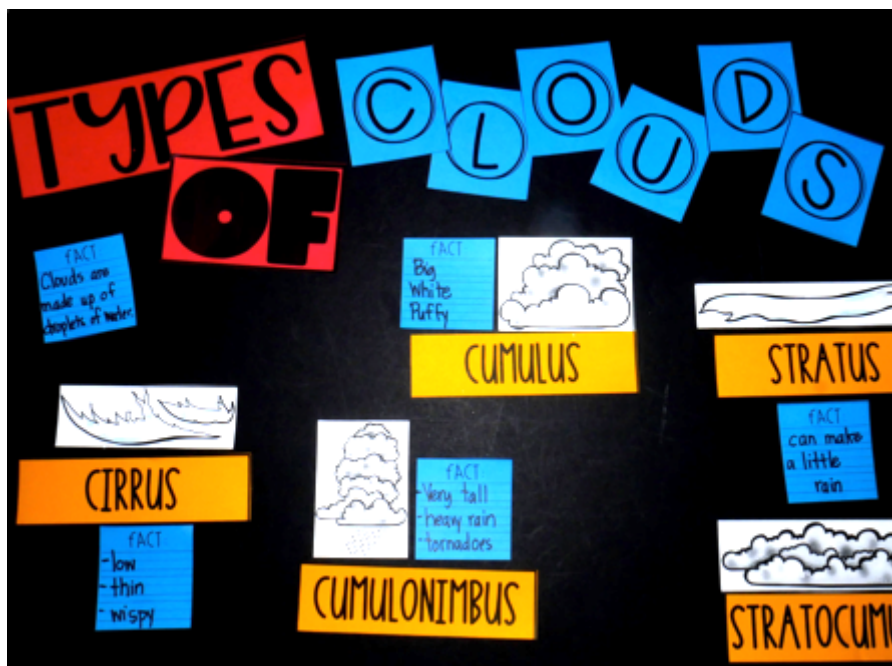 TYPES
OF
CLOUDS
FACT
Clouds are
made up of
droplets of water.
FACT
Big
White
Puffy
CUMULUS
STRATUS
FACT
can make
a little
rain
CIRRUS
FACT
-low
-thin
-wispy
FACT
-Very tall
-heavy rain
-tornadoes
CUMULONIMBUS
STRATOCUMU